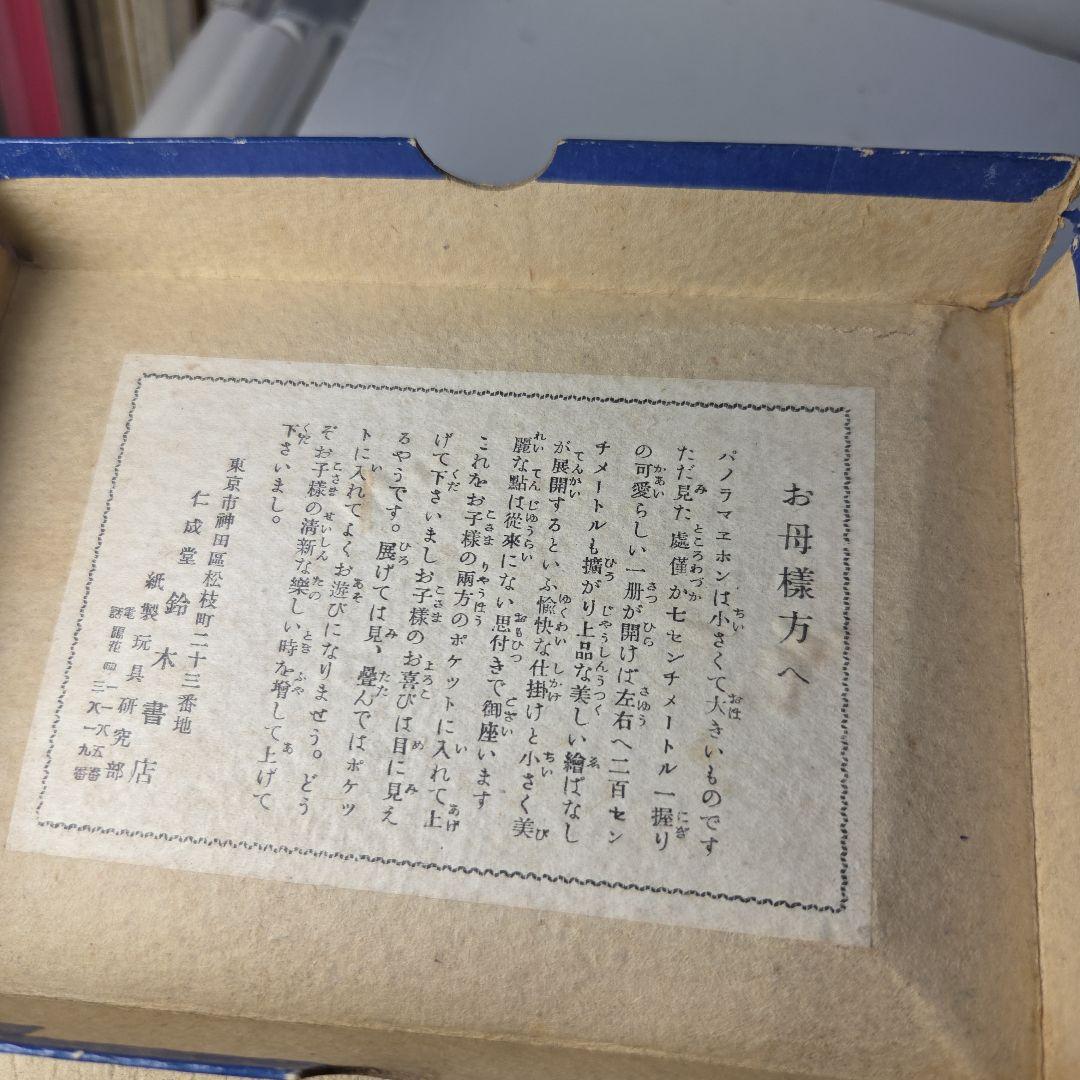 お母樣方へ
パノラマヱホンは小さくて大きいものです
ただ見た處僅か七センチメートル一握り
の可愛らしい一册が開けば左右へ二百セン
チメートルも擴がり上品な美しい繪ばなし
が展開するといふ愉快な仕掛けと小さく美
麗な點は從來にない思付きで御座います
これをお子樣の兩方のポケットに入れて上
げて下さいましお子樣のお喜びは目に見え
るやうです。展げては見、疊んではポケッ
トに入れてよくお遊びになりませう。どう
ぞお子樣の清新な樂しい時を増して上げて
下さいまし。
東京市神田區松枝町二十三番地
仁成堂 鈴木書店
紙製玩具研究部
電話浪花